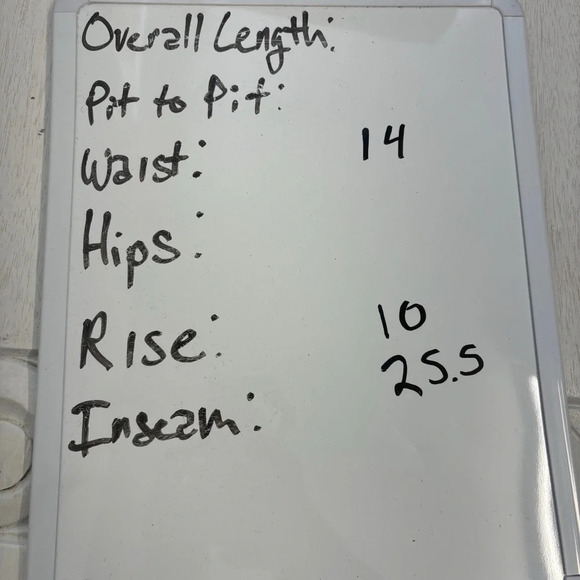 Overall Length:
Pit to Pit:
Waist: 14
Hips:
Rise: 10
Inseam: 25.5